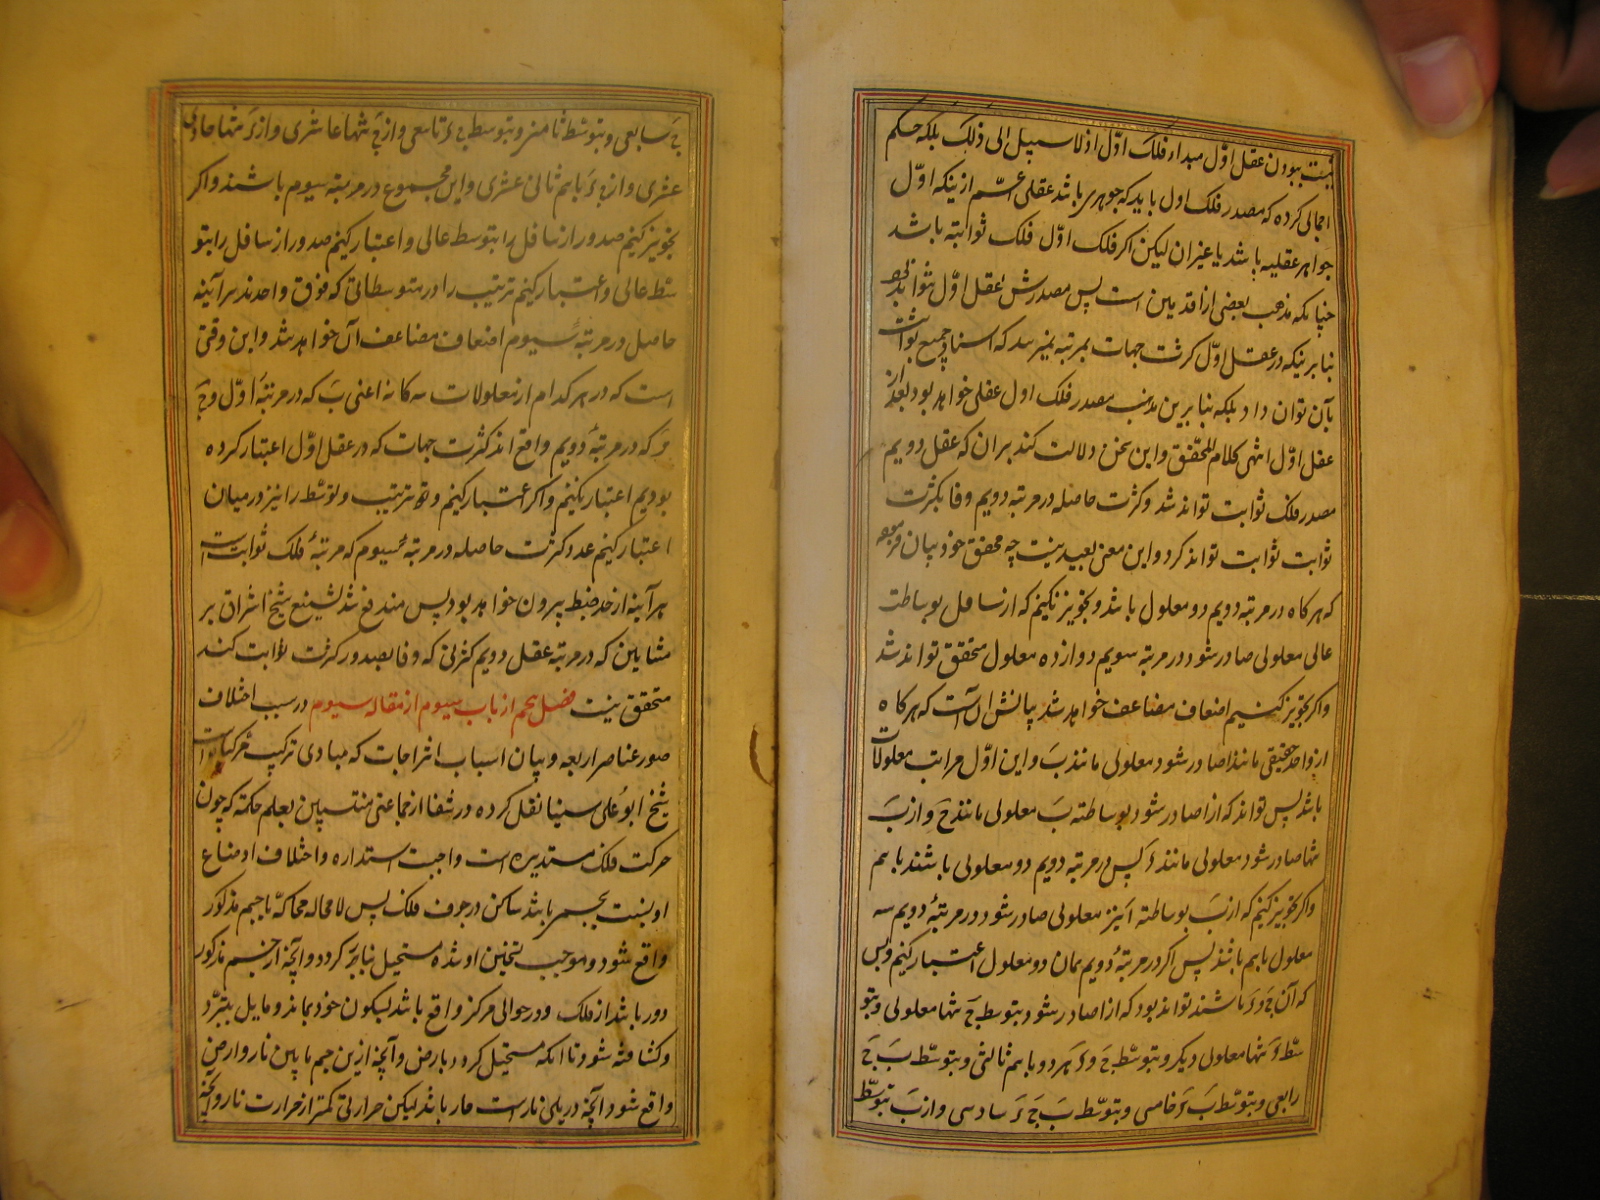 نیست ببودن عقل اوّل مبداء فلک اوّل اذ لا سبیل الی ذلک بلکه حکم
اجمالی کرده که مصدر فلک اول باید که جوهری باشد عقلی اعمّ از ینکه اوّل
جواهر عقلیه باشد یا غیر ان لیکن اکر فلک اوّل فلک ثوابته باشد
چنانکه مذهب بعضی از اقدمین است پس مصدرش عقل اوّل نتواند بود
بنابر ینکه در عقل اوّل کثرت جهات بمرتبه نمیرسد که اسناد جمیع ثوابت
بآن توان داد بلکه بنابرین مذهب مصدر فلک اول عقلی خواهد بود بعد از
عقل اوّل انتهی کلام المحقق و این سخن دلالت کند بران که عقل دویم
مصدر فلک ثوابت تواند شد و کثرت حاصله در مرتبه دویم وفا بکثرت
ثوابت ثوابت تواند کرد و این معنی بعید نیست چه محقق خود بیان فرموده
که هرکاه در مرتبه دویم دو معلول باشد و تجویز نکنیم که از سافل بوساطت
عالی معلولی صادر شود در مرتبه سویم دوازده معلول متحقق تواند شد
و اکر تجویز کنیم اضعاف مضاعف خواهد شد بیانش آنست که هرکاه
از واحد حقیقی مانند ا صادر شود معلولی مانند بَ و این اوّل مراتب معلولات
باشد پس تواند که از ا صادر شود بوساطته بَ معلولی مانند جَ و از بَ
تنها صادر شود معلولی مانند دَ پس در مرتبه دویم دو معلولی باشند با هم
و اکر تجویز کنیم که از بَ بوساطته ا نیز معلولی صادر شود در مرتبهٔ دویم سه
معلول با هم باشند پس اکر در مرتبهٔ دویم همان دو معلول اعتبار کنیم و بس
که آن جَ و دَ باشند تواند بود که از ا صادر شود بتوسط جَ تنها معلولی و بتو
سّط دَ تنها معلول دیکر و بتوسّط جَ و دَ هر دو با هم ثالثی و بتوسّط بَ جَ
رابعی و بتوسّط بَ دَ خامسی و بتوسّط بَ جَ دَ سادسی و از بَ بتوسّط
جَ سابعی و بتوسّط دَ ثامنی و بتوسط جَ دَ تاسعی و از جَ تنها عاشری و از دَ تنها حادی
عشری و از جَ دَ با هم ثانی عشری و این مجموع در مرتبه سیوم باشند و اکر
تجویز کنیم صدور از سافل را بتوسط عالی و اعتبار کنیم صدور از سافل را بتو
سّط عالی و اعتبار کنیم ترتیب را در متوسطاتی که فوق واحدند هر آینه
حاصل در مرتبهٔ سیوم اضعاف مضاعف آن خواهد شد و این وقتی
است که در هر کدام از معلولات سه کانه اعنی بَ که در مرتبهٔ اوّل و جَ
دَ که در مرتبهٔ دویم واقع اند کثرت جهات که در عقل اوّل اعتبار کرده
بودیم اعتبار نکنیم و اکر اعتبار کنیم و ترتیب و توسّط را نیز در میان
اعتبار کنیم عدد کثرت حاصله در مرتبهٔ سیوم که مرتبهٔ فلک ثوابت است
هر آینه از حد ضبط بیرون خواهد بود پس مندفع شد تشنیع شیخ اشراق بر
مشایین که در مرتبه عقل دویم کثرتی که وفا بصدور کثرت ثوابت کند
متحقق نیست فصل پنجم از باب سیوم از مقاله سیوم در سبب اختلاف
صور عناصر اربعه و بیان اسباب امتزاجات که مبادی ترکیب مرکبات است
شیخ ابو علی سینا نقل کرده در شفا از جماعتی منتسبین بعلم حکمة که چون
حرکت فلک مستدیره است واجبست استداره و اختلاف اوضاع
او بنسبت بجسمی باشد ساکن در جوف فلک پس لا محاله محاکّهٔ با جسم مذکور
واقع شود و موجب تسخین او شده مستحیل بنار کردد و آنچه از جسم مذکور
دور باشد از فلک و در حوالی مرکز واقع باشد بسکون خود بماند و مایل بتبرّد
و کثافته شود تا انکه مستحیل کردد بارض و آنچه ازین جسم مابین نار و ارض
واقع شود آنچه در یلی نار است حار باشد لیکن حرارتی کمتر از حرارت نار و آنچه